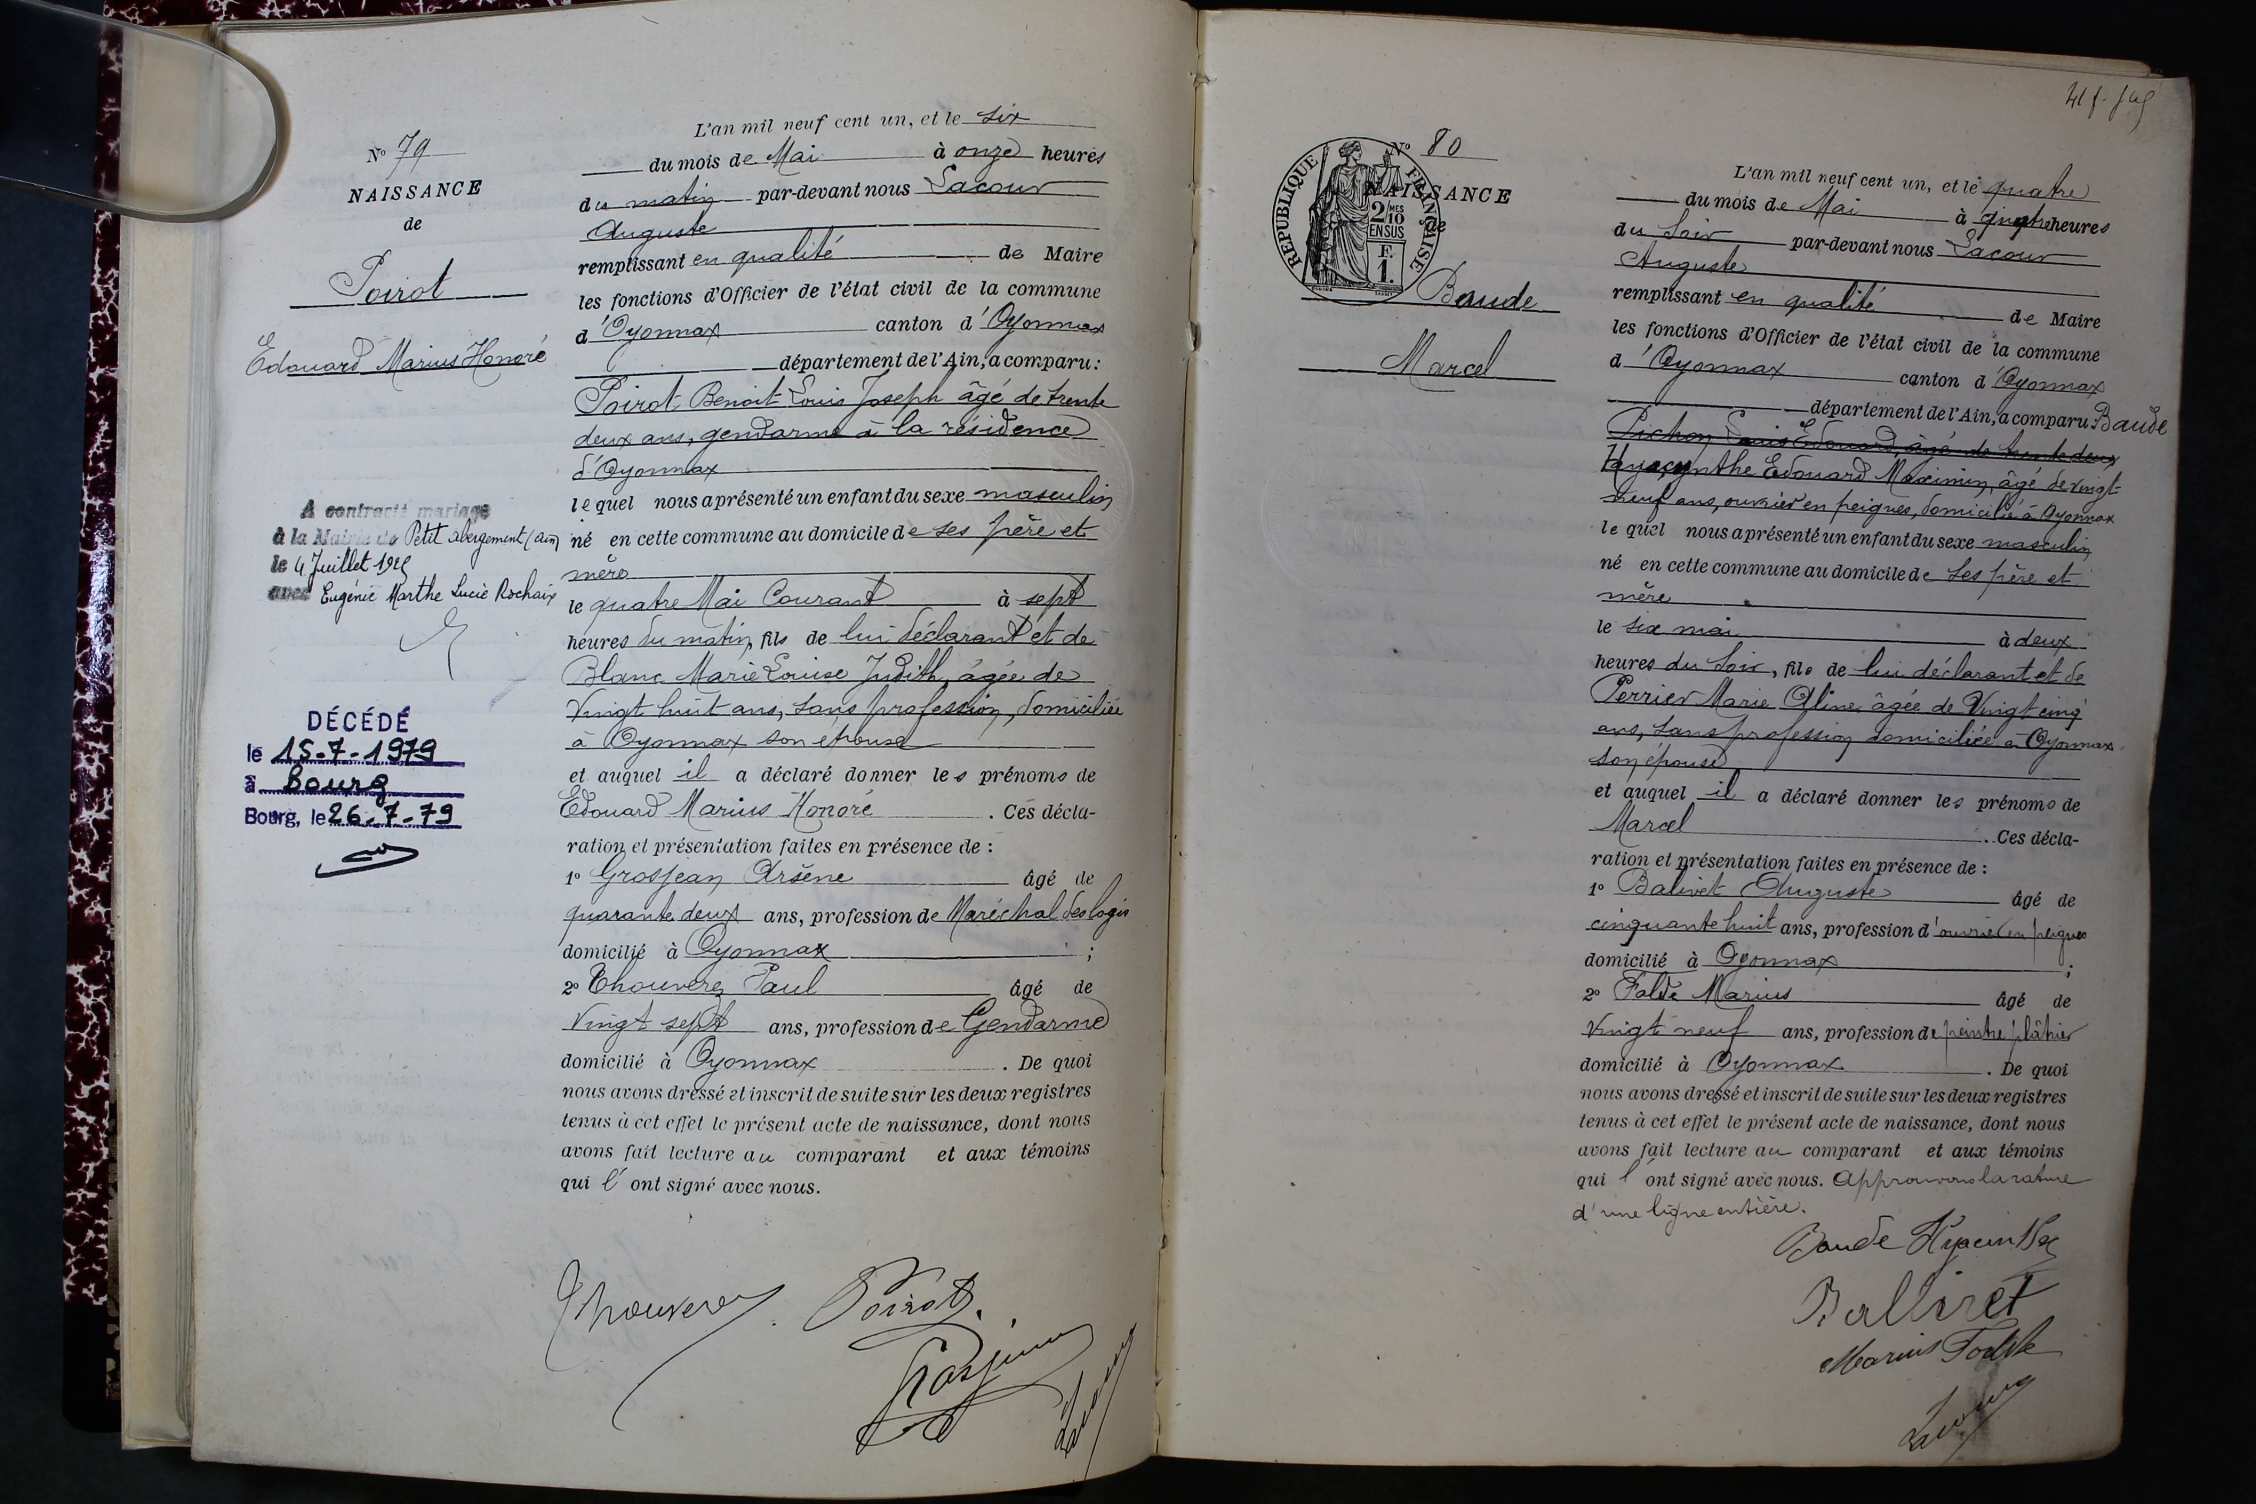 L'an mil neuf cent un, et le six
N° 79
du mois de Mai à onze heures
NAISSANCE
du matin par-devant nous Lacour
de
Auguste
remplissant en qualité de Maire
Poirot
les fonctions d'Officier de l'état civil de la commune
d'Oyonnax canton d'Oyonnax
Edouard Marius Honoré
département de l'Ain, a comparu:
Poirot Benoit Louis Joseph âgé de trente
deux ans, gendarme à la résidence
d'Oyonnax
lequel nous a présenté un enfant du sexe masculin
A contracté mariage
à la Mairie de Petit Abergement (Ain)
le 4 Juillet 1925
avec Eugénie Marthe Lucie Rochaix
né en cette commune au domicile de ses père et
mère
le quatre Mai Courant à sept
heures du matin, fils de lui déclarant et de
Blanc Marie Louise Judith, âgée de
Vingt huit ans, sans profession, domiciliée
à Oyonnax son épouse
DÉCÉDÉ
le 15-7-1979
à Bourg
Bourg, le 26-7-79
et auquel il a déclaré donner les prénoms de
Edouard Marius Honoré. Ces décla-
ration et présentation faites en présence de :
1° Grosjean Arsène âgé de
quarante deux ans, profession de Maréchal des logis
domicilié à Oyonnax ;
2° Thouverez Paul âgé de
Vingt sept ans, profession de Gendarme
domicilié à Oyonnax. De quoi
nous avons dressé et inscrit de suite sur les deux registres
tenus à cet effet le présent acte de naissance, dont nous
avons fait lecture au comparant et aux témoins
qui l'ont signé avec nous.
Thouverez Poirot
Grosjean
Lacour
N° 80
RÉPUBLIQUE FRANÇAISE
2 MES
10
EN SUS
F.
1.
NAISSANCE
de
Baude
Marcel
L'an mil neuf cent un, et le quatre
du mois de Mai à quatre heures
du Soir par-devant nous Lacour
Auguste
remplissant en qualité de Maire
les fonctions d'Officier de l'état civil de la commune
d'Oyonnax canton d'Oyonnax
département de l'Ain, a comparu Baude
Pichon Louis Edouard, âgé de trente deux
Hyacynthe Edouard Maximin, âgé de vingt
neuf ans, ouvrier en peignes, domicilié à Oyonnax
lequel nous a présenté un enfant du sexe masculin
né en cette commune au domicile de ses père et
mère
le six mai à deux
heures du soir, fils de lui déclarant et de
Perrier Marie Aline âgée de Vingt cinq
ans, sans profession domiciliée à Oyonnax
son épouse
et auquel il a déclaré donner les prénoms de
Marcel. Ces décla-
ration et présentation faites en présence de :
1° Balivet Auguste âgé de
cinquante huit ans, profession d'ouvrier en peignes
domicilié à Oyonnax ;
2° Falde Marius âgé de
Vingt neuf ans, profession de peintre plâtrier
domicilié à Oyonnax. De quoi
nous avons dressé et inscrit de suite sur les deux registres
tenus à cet effet le présent acte de naissance, dont nous
avons fait lecture au comparant et aux témoins
qui l'ont signé avec nous. Approuvons la rature
d'une ligne entière.
Baude Hyacinthe
Balliret
Marius Falde
Lacour